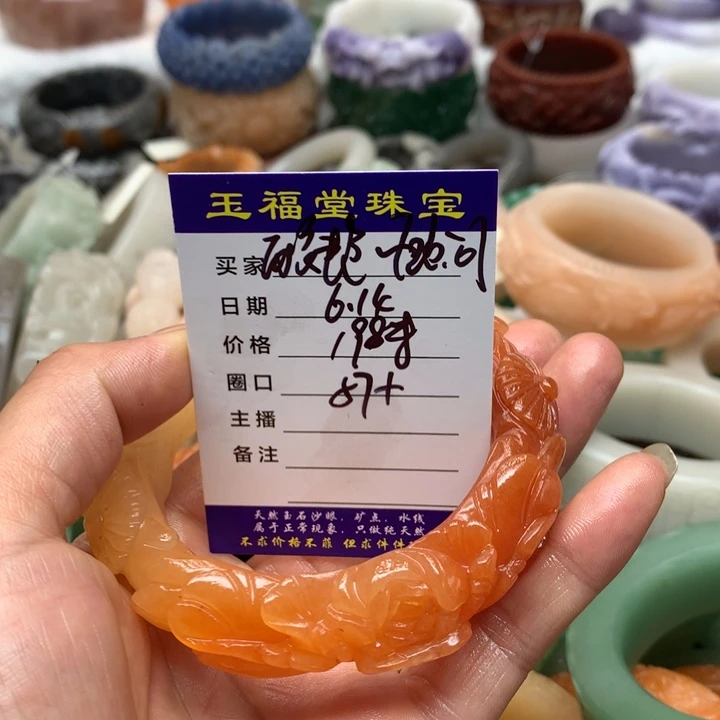 玉福堂珠宝
买家
日期 6.14
价格 198
圈口 57+
主播
备注
天然玉石沙眼，矿点，水线
属于正常现象，只做纯天然
不求价格不菲 但求件件